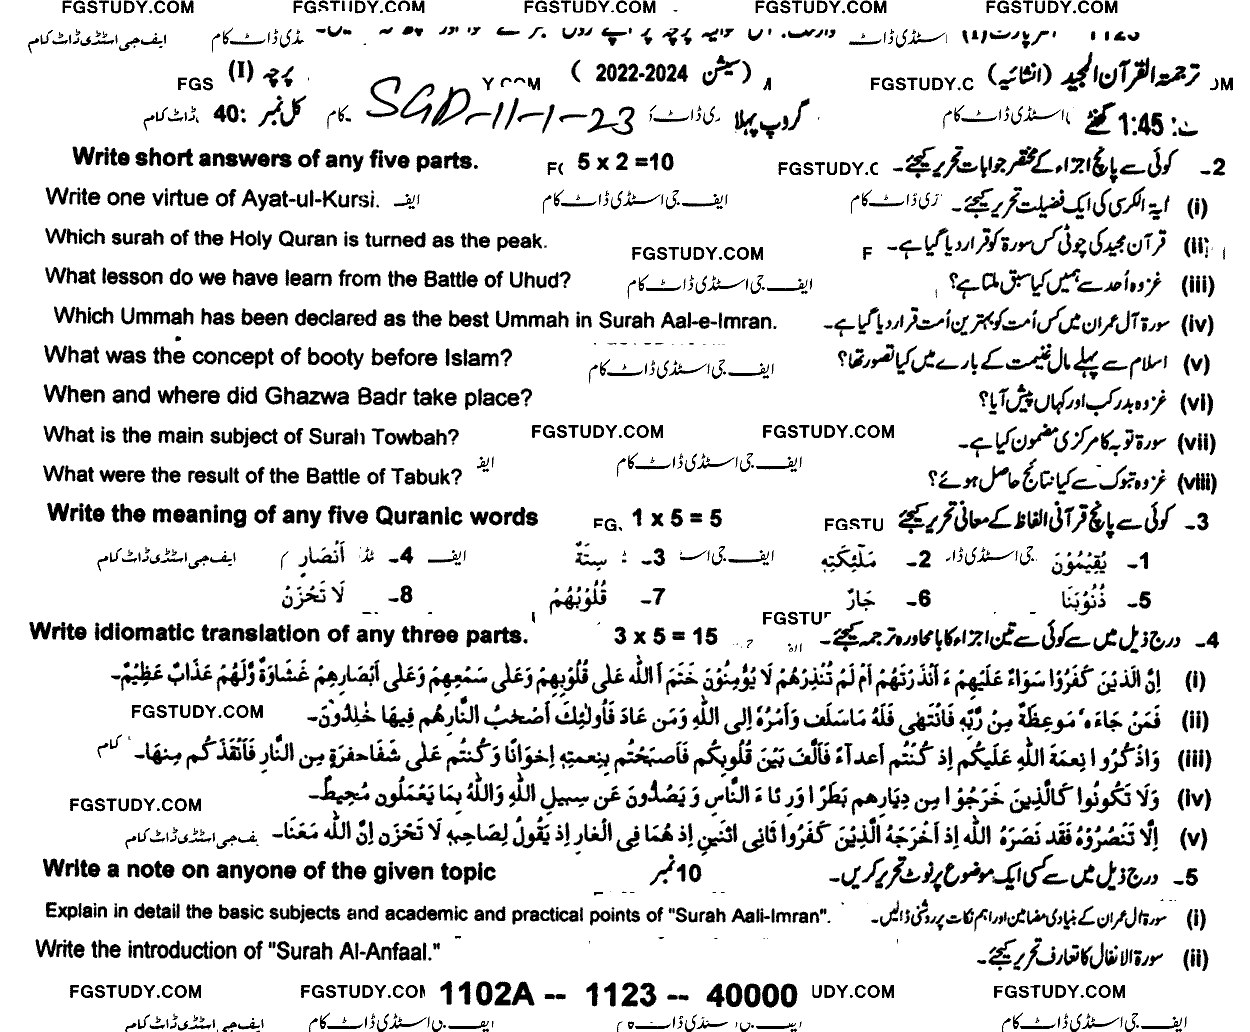 FGSTUDY.COM FGSTUDY.COM FGSTUDY.COM FGSTUDY.COM FGSTUDY.COM
ایف جی اسٹڈی ڈاٹ کام
ترجمۃ القرآن المجید (انشائیہ) (سیشن 2022-2024) پرچہ (I)
1:45 گھنٹے گروپ پہلا SGD-11-1-23 کل نمبر :40
2- کوئی سے پانچ اجزاء کے مختصر جوابات تحریر کیجئے۔ 5 x 2 =10 Write short answers of any five parts.
(i) آیۃ الکرسی کی ایک فضیلت تحریر کیجئے۔ Write one virtue of Ayat-ul-Kursi.
(ii) قرآن مجید کی چوٹی کس سورۃ کو قرار دیا گیا ہے۔ Which surah of the Holy Quran is turned as the peak.
(iii) غزوہ اُحد سے ہمیں کیا سبق ملتا ہے؟ What lesson do we have learn from the Battle of Uhud?
(iv) سورۃ آل عمران میں کس اُمت کو بہترین اُمت قرار دیا گیا ہے۔ Which Ummah has been declared as the best Ummah in Surah Aal-e-Imran.
(v) اسلام سے پہلے مال غنیمت کے بارے میں کیا تصور تھا؟ What was the concept of booty before Islam?
(vi) غزوہ بدر کب اور کہاں پیش آیا؟ When and where did Ghazwa Badr take place?
(vii) سورۃ توبہ کا مرکزی مضمون کیا ہے۔ What is the main subject of Surah Towbah?
(viii) غزوہ تبوک سے کیا نتائج حاصل ہوئے؟ What were the result of the Battle of Tabuk?
3- کوئی سے پانچ قرآنی الفاظ کے معانی تحریر کیجئے 1 x 5 = 5 Write the meaning of any five Quranic words
1- یُقِیْمُوْنَ 2- مَلٰٓئِکَتِہٖ 3- سِنَۃٌ 4- اَنْصَارٍ
5- ذُنُوْبَنَا 6- جَارٌ 7- قُلُوْبُهُمْ 8- لَا تَحْزَنْ
4- درج ذیل میں سے کوئی سے تین اجزاء کا بامحاورہ ترجمہ کیجئے۔ 3 x 5 = 15 Write idiomatic translation of any three parts.
(i) اِنَّ الَّذِیْنَ کَفَرُوْا سَوَآءٌ عَلَیْهِمْ ءَ اَنْذَرْتَهُمْ اَمْ لَمْ تُنْذِرْهُمْ لَا یُؤْمِنُوْنَ خَتَمَ اللّٰهُ عَلٰی قُلُوْبِهِمْ وَعَلٰی سَمْعِهِمْ وَعَلٰی اَبْصَارِهِمْ غِشَاوَةٌ وَّلَهُمْ عَذَابٌ عَظِیْمٌ۔
(ii) فَمَنْ جَآءَهٗ مَوْعِظَةٌ مِنْ رَّبِّهٖ فَانْتَهٰی فَلَهٗ مَاسَلَفَ وَاَمْرُهٗ اِلَی اللّٰهِ وَمَنْ عَادَ فَاُولٰئِكَ اَصْحٰبُ النَّارِهُمْ فِیْهَا خٰلِدُوْنَ۔
(iii) وَاذْكُرُوا نِعمَةَ اللّٰهِ عَلَيكُم اِذ كُنتُم اَعدآءً فَاَلَّفَ بَينَ قُلُوبِكُم فَاَصبَحتُم بِنِعمتِهٖ اِخوَانًا وَكُنتُم عَلٰى شَفَاحفرَةٍ مِن النَّارِ فَاَنقَذَكُم مِنهَا۔
(iv) وَلَا تَكُونُوا كَالَّذِينَ خَرَجُوْا مِن دِيَارِهِم بَطَرًا وَرِئاءَ النَّاسِ وَيَصُدُّونَ عَن سبِيلِ اللّٰهِ وَاللّٰهُ بِمَا يَعْمَلُونَ مُحِيطٌ۔
(v) اِلَّا تَنْصُرُوْهُ فَقَد نَصَرَهُ اللّٰه اِذ اَخْرَجَهُ الَّذِيْنَ كَفَرُوا ثَانِی اثنَينِ اِذ هُمَا فِی الغَارِ اِذ يَقُولُ لِصَاحِبِهٖ لَا تَحْزَن اِنَّ اللّٰه مَعَنَا۔
5- درج ذیل میں سے کسی ایک موضوع پر نوٹ تحریر کریں۔ 10 نمبر Write a note on anyone of the given topic
(i) سورۃ ال عمران کے بنیادی مضامین اور اہم نکات پر روشنی ڈالیں۔ Explain in detail the basic subjects and academic and practical points of "Surah Aali-Imran".
(ii) سورۃ الانفال کا تعارف تحریر کیجئے۔ Write the introduction of "Surah Al-Anfaal."
FGSTUDY.COM 1102A -- 1123 -- 40000 FGSTUDY.COM